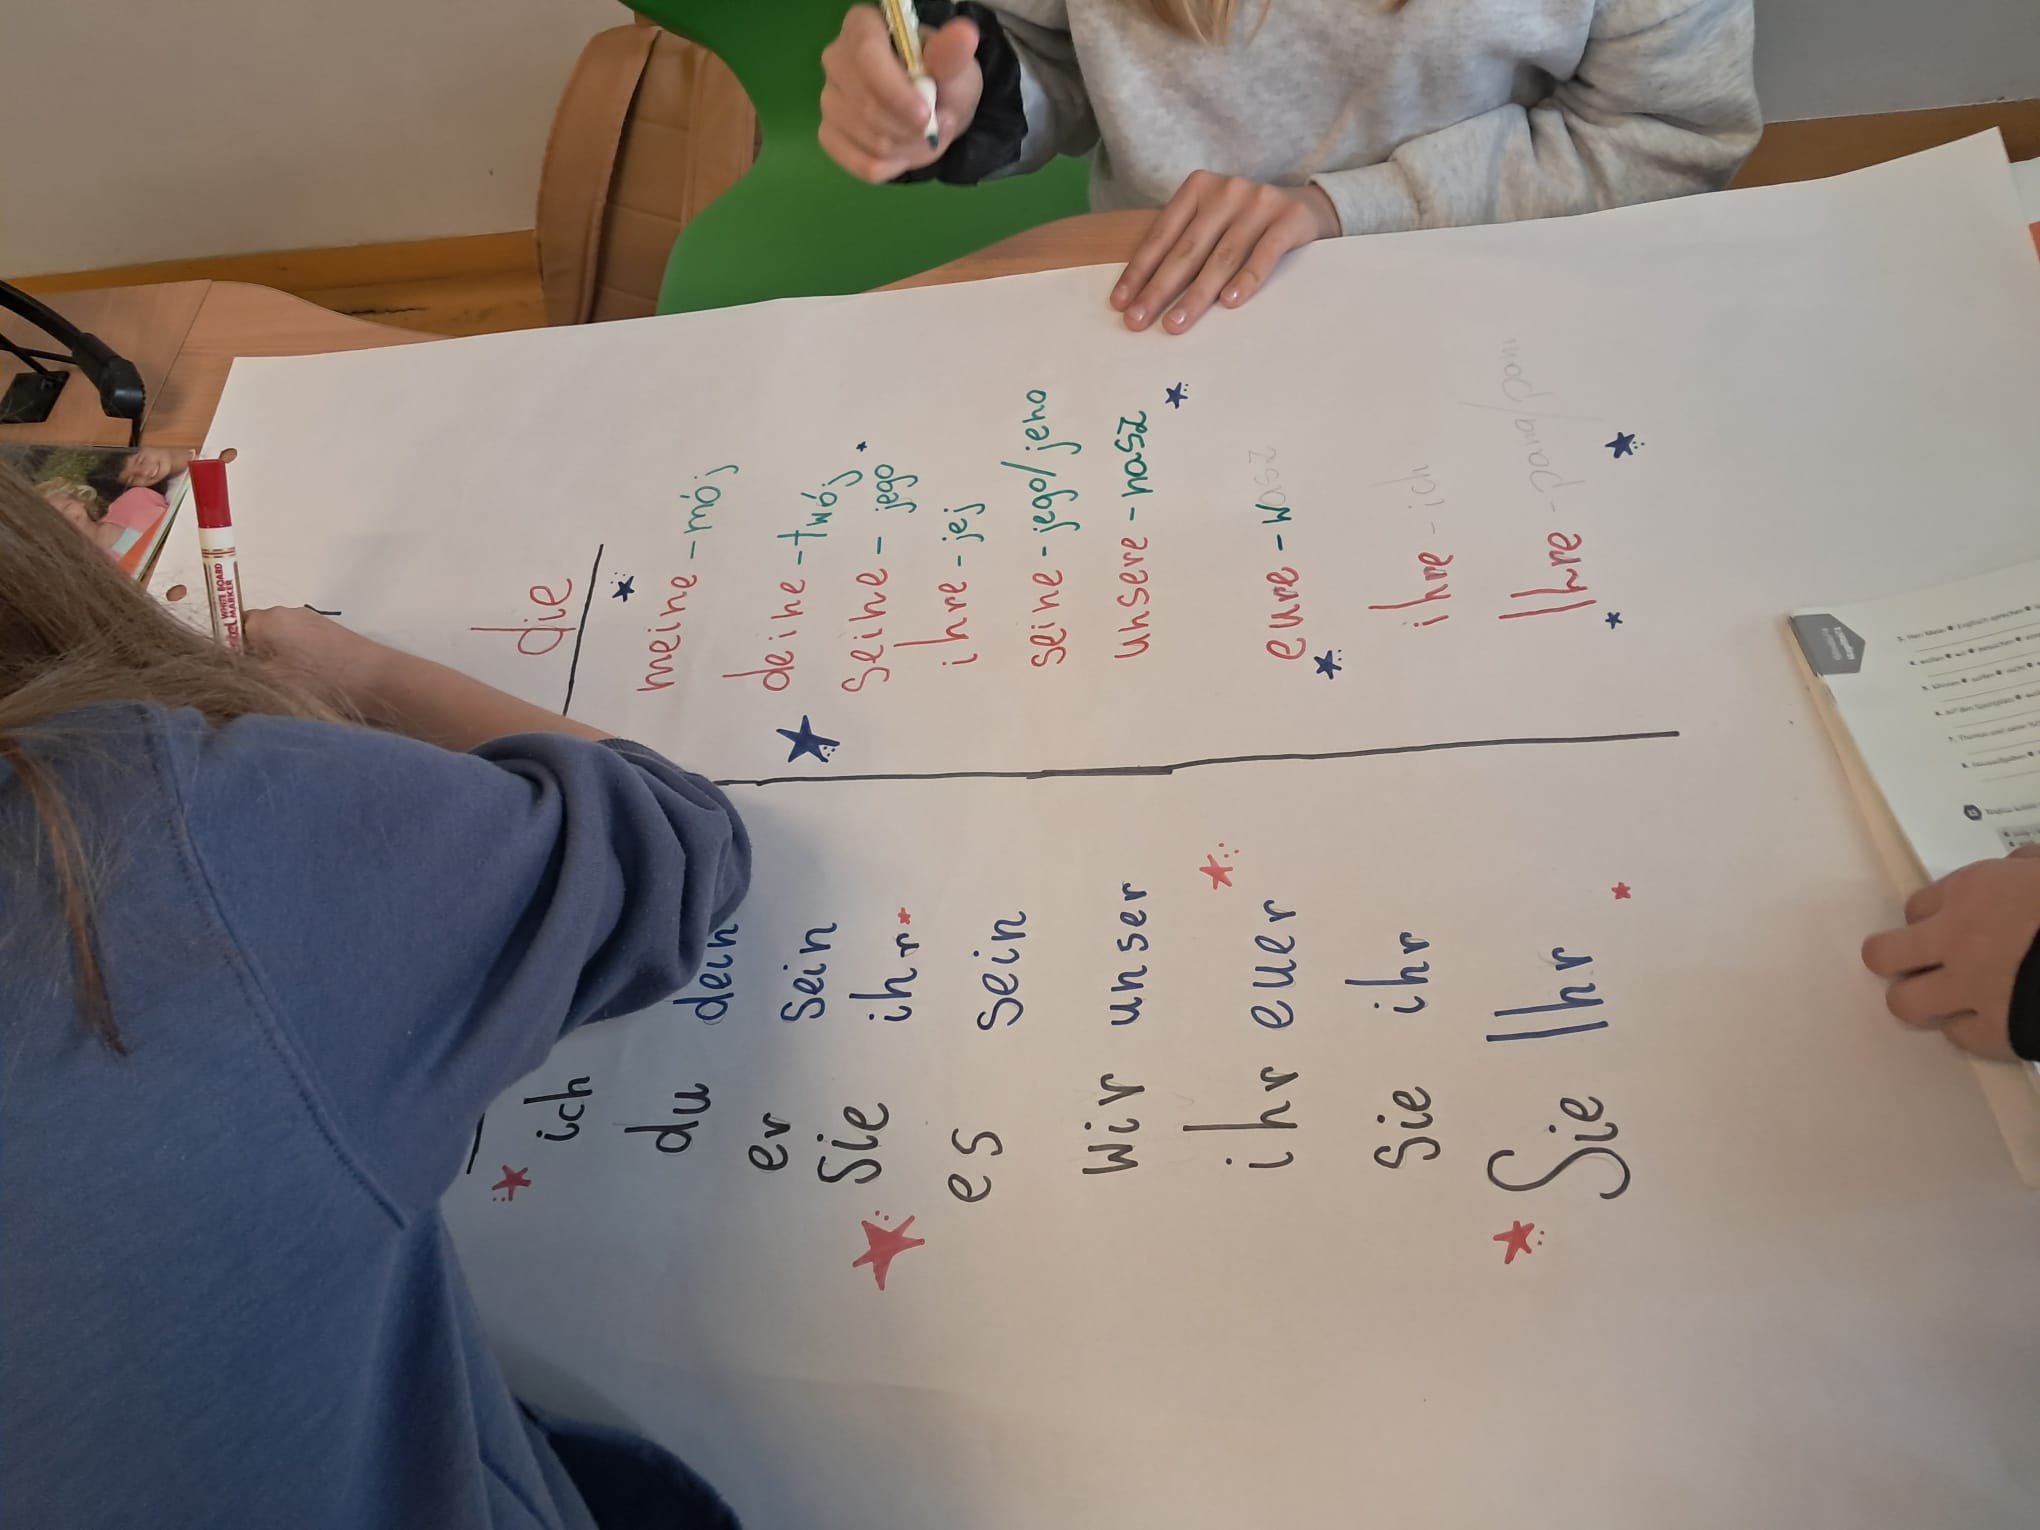 die
ich
meine - mój
du dein
deine - twój
er sein
seine - jego
Sie ihr
ihre - jej
es sein
seine - jego/jeho
Wir unser
unsere - nasz
ihr euer
eure - wasz
wasz
Sie ihr
ihre - ich
Sie Ihr
Ihre - pana/pani
WHITE BOARD
MARKER